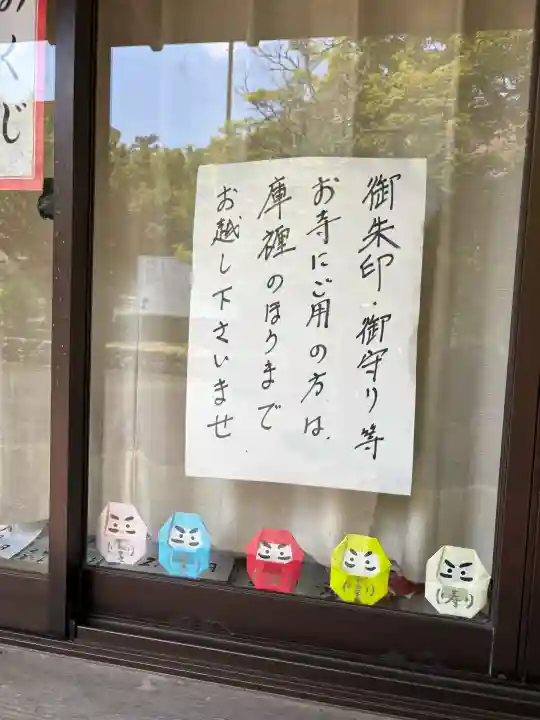 御朱印・御守り等
お寺にご用の方は、
庫裡のほうまで
お越し下さいませ
みくじ
寿